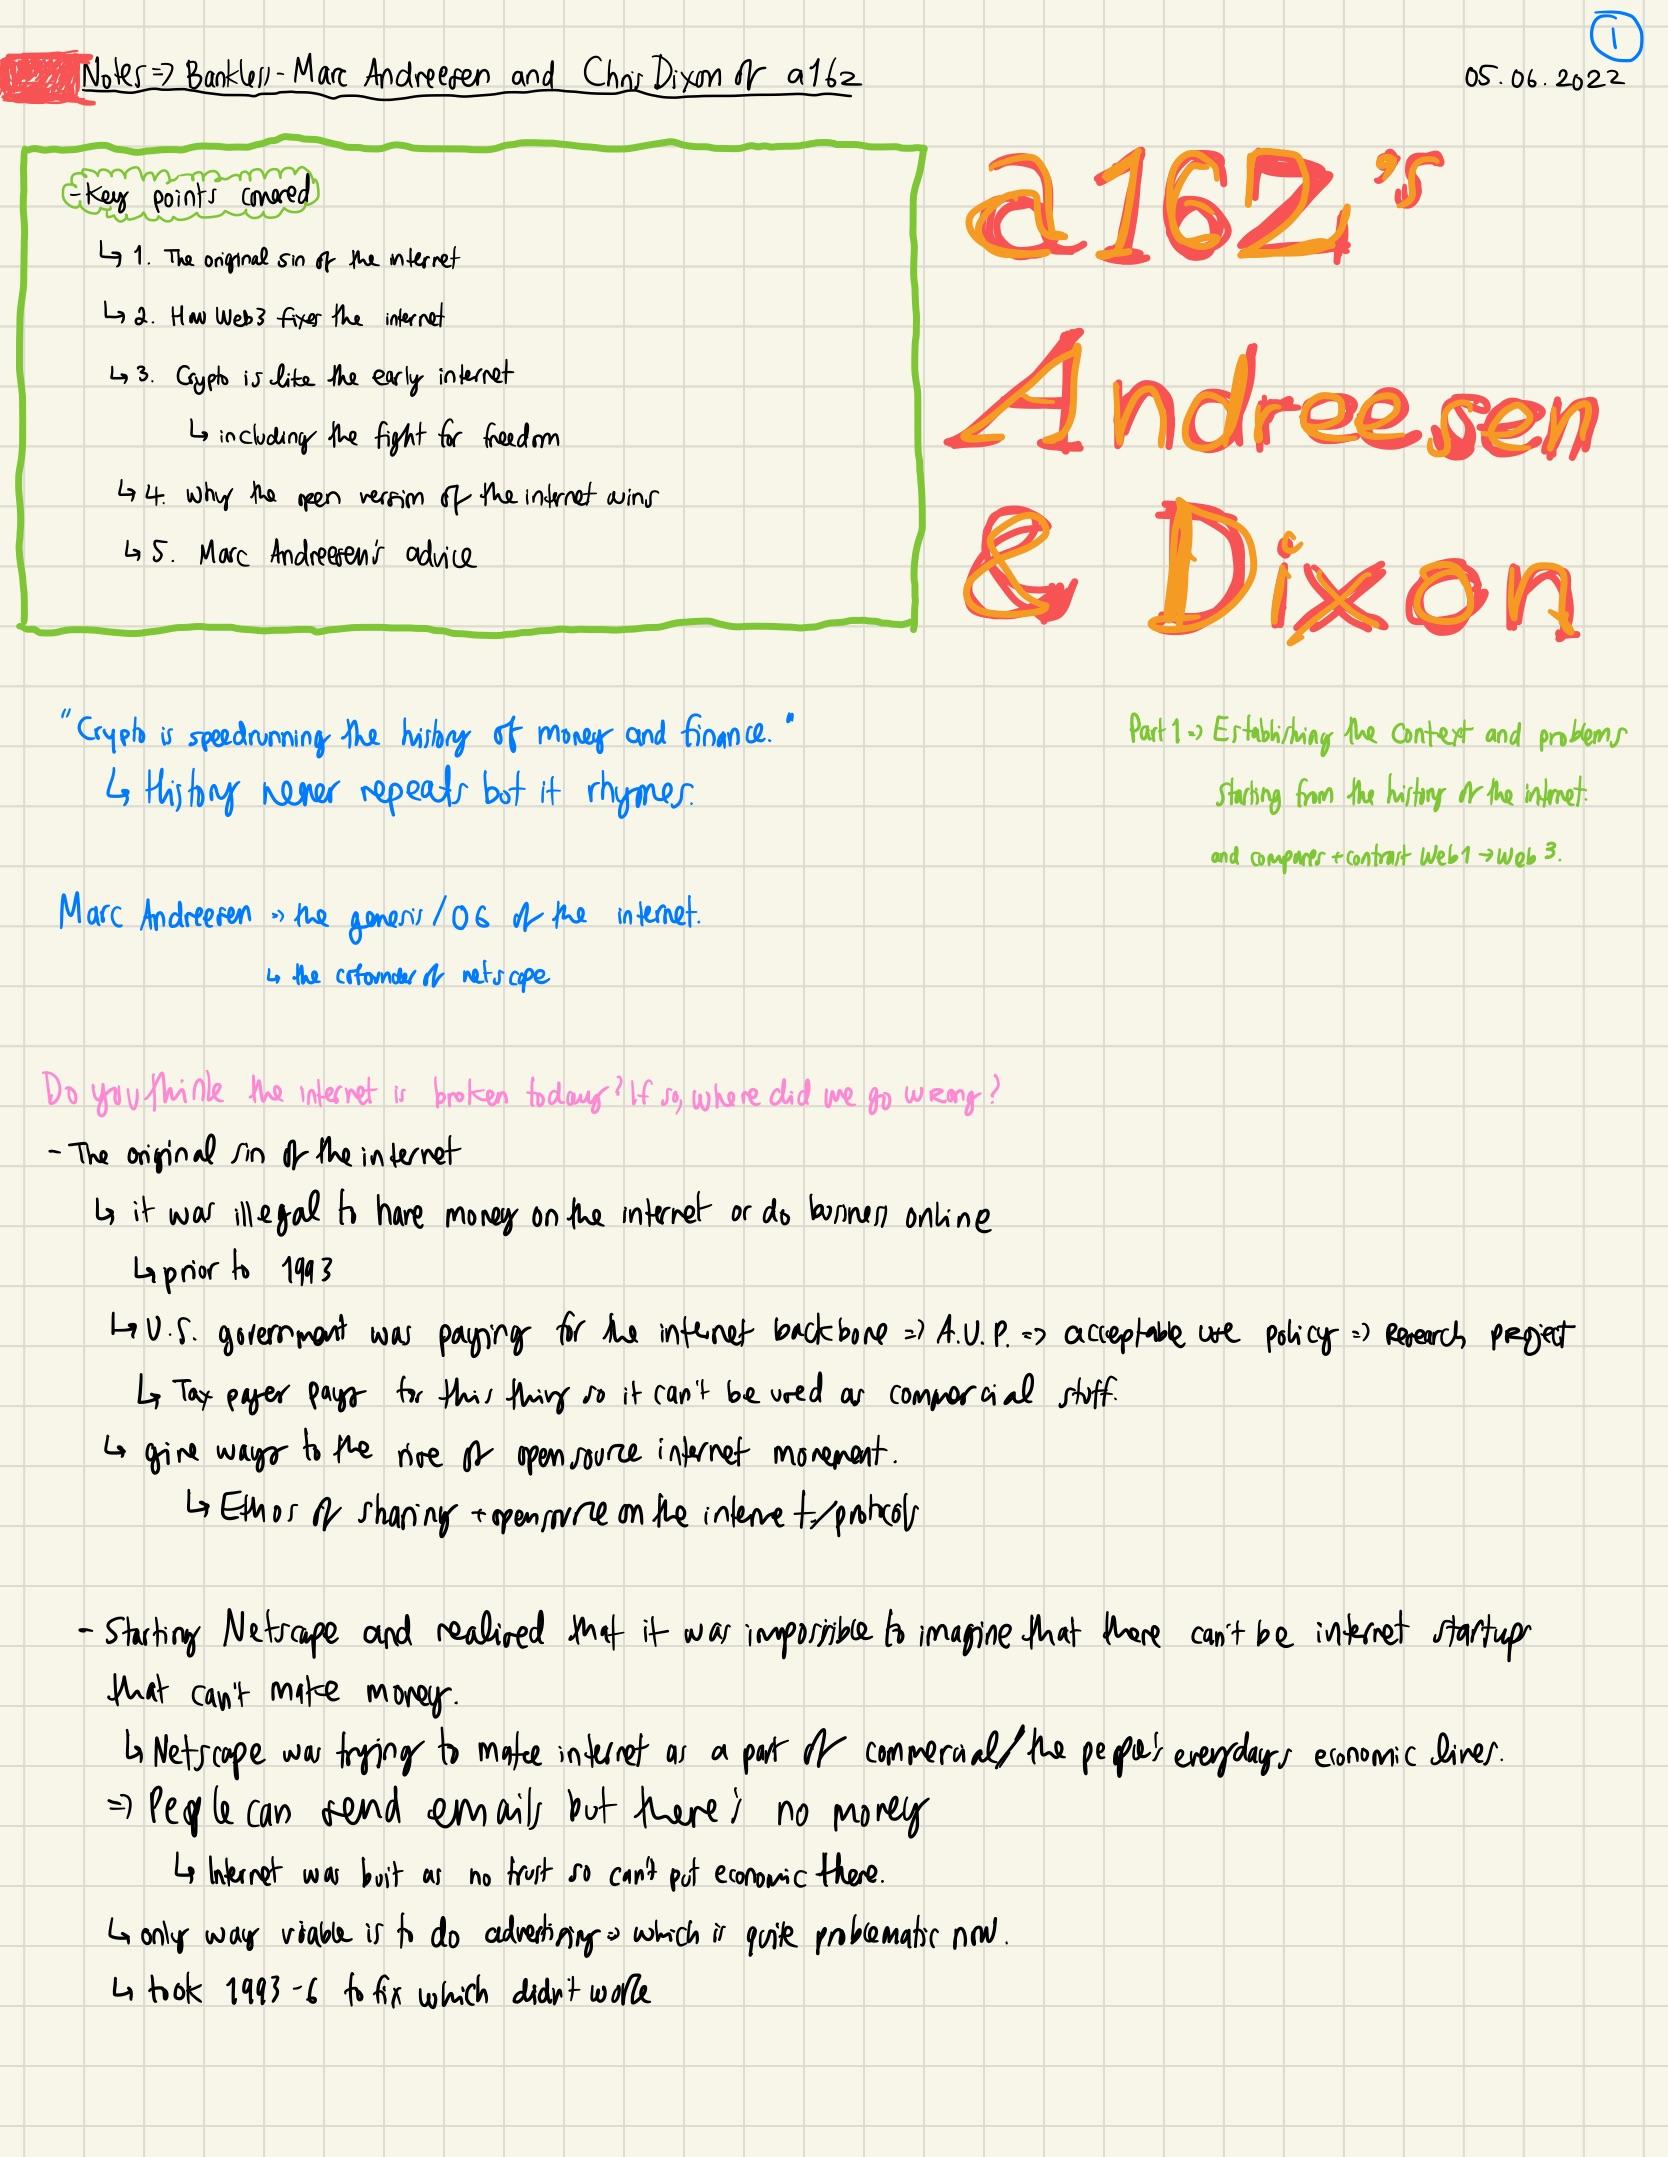 1
Notes => Bankless - Marc Andreesen and Chris Dixon of a16z
05.06.2022
- Key points covered
↳ 1. The original sin of the internet
↳ 2. How Web3 fixes the internet
↳ 3. Crypto is like the early internet
↳ including the fight for freedom
↳ 4. Why the open version of the internet wins
↳ 5. Marc Andreesen's advice
a16z's
Andreesen
& Dixon
"Crypto is speedrunning the history of money and finance."
↳ History never repeats but it rhymes.
Part 1 => Establishing the context and problems
starting from the history of the internet.
and compares + contrast Web1 → Web3.
Marc Andreesen => the genesis/OG of the internet.
↳ the cofounder of netscape
Do you think the internet is broken today? If so, where did we go wrong?
- The original sin of the internet
↳ it was illegal to have money on the internet or do business online
↳ prior to 1993
↳ U.S. government was paying for the internet backbone => A.U.P. => acceptable use policy => research project
↳ Tax payer pays for this thing so it can't be used as commercial stuff.
↳ give ways to the rise of opensource internet movement.
↳ Ethos of sharing + opensource on the internet/protocols
- Starting Netscape and realised that it was impossible to imagine that there can't be internet startup
that can't make money.
↳ Netscape was trying to make internet as a part of commercial/the people's everydays economic lives.
=> People can send emails but there's no money
↳ Internet was buit as no trust so can't put economic there.
↳ only way viable is to do advertising => which is quite problematic now.
↳ took 1993-6 to fix which didn't work